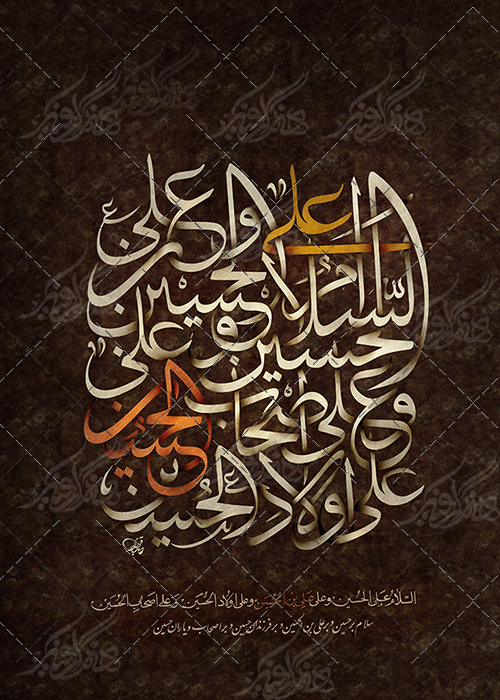 السلام علی الحسین و علی علی بن الحسین و علی اولاد الحسین و علی اصحاب الحسین
السلام علی الحسین و علی علی بن الحسین و علی اولاد الحسین و علی اصحاب الحسین
سلام بر حسین و بر علی بن الحسین و بر فرزندان حسین و بر اصحاب و یاران حسین